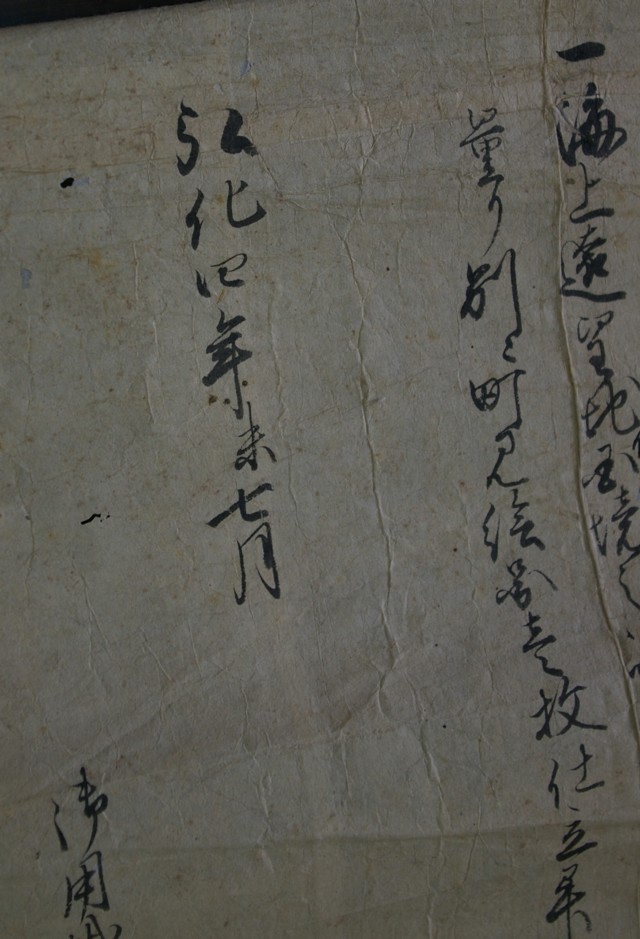 一海上遠望地図境之
量り別ニ町見絵図壱枚仕立
弘化四年未七月
御用